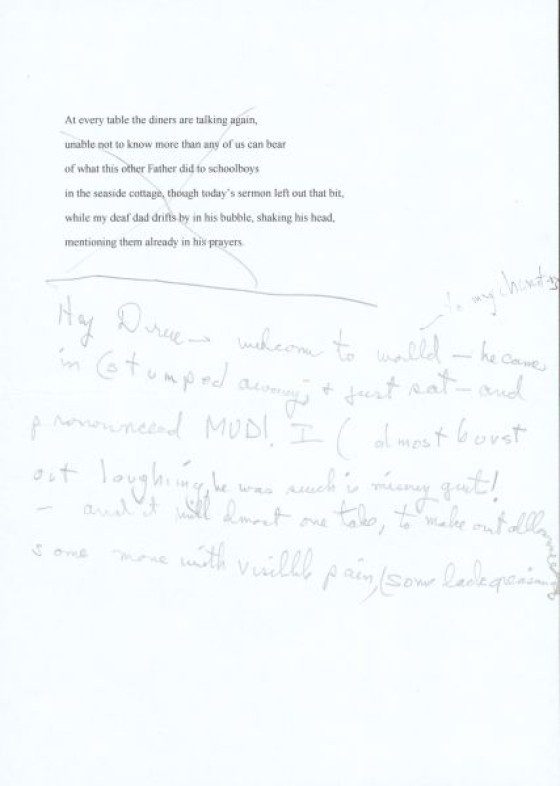 At every table the diners are talking again,
unable not to know more than any of us can bear
of what this other Father did to schoolboys
in the seaside cottage, though today's sermon left out that bit,
while my deaf dad drifts by in his bubble, shaking his head,
mentioning them already in his prayers.
to my
Hey welcome to world – he came
in (stumped away, + just sat – and
pronounced MUD! I (almost burst
out laughing, he was such
– and it will almost one take, to make out
some more with visible pain, (some